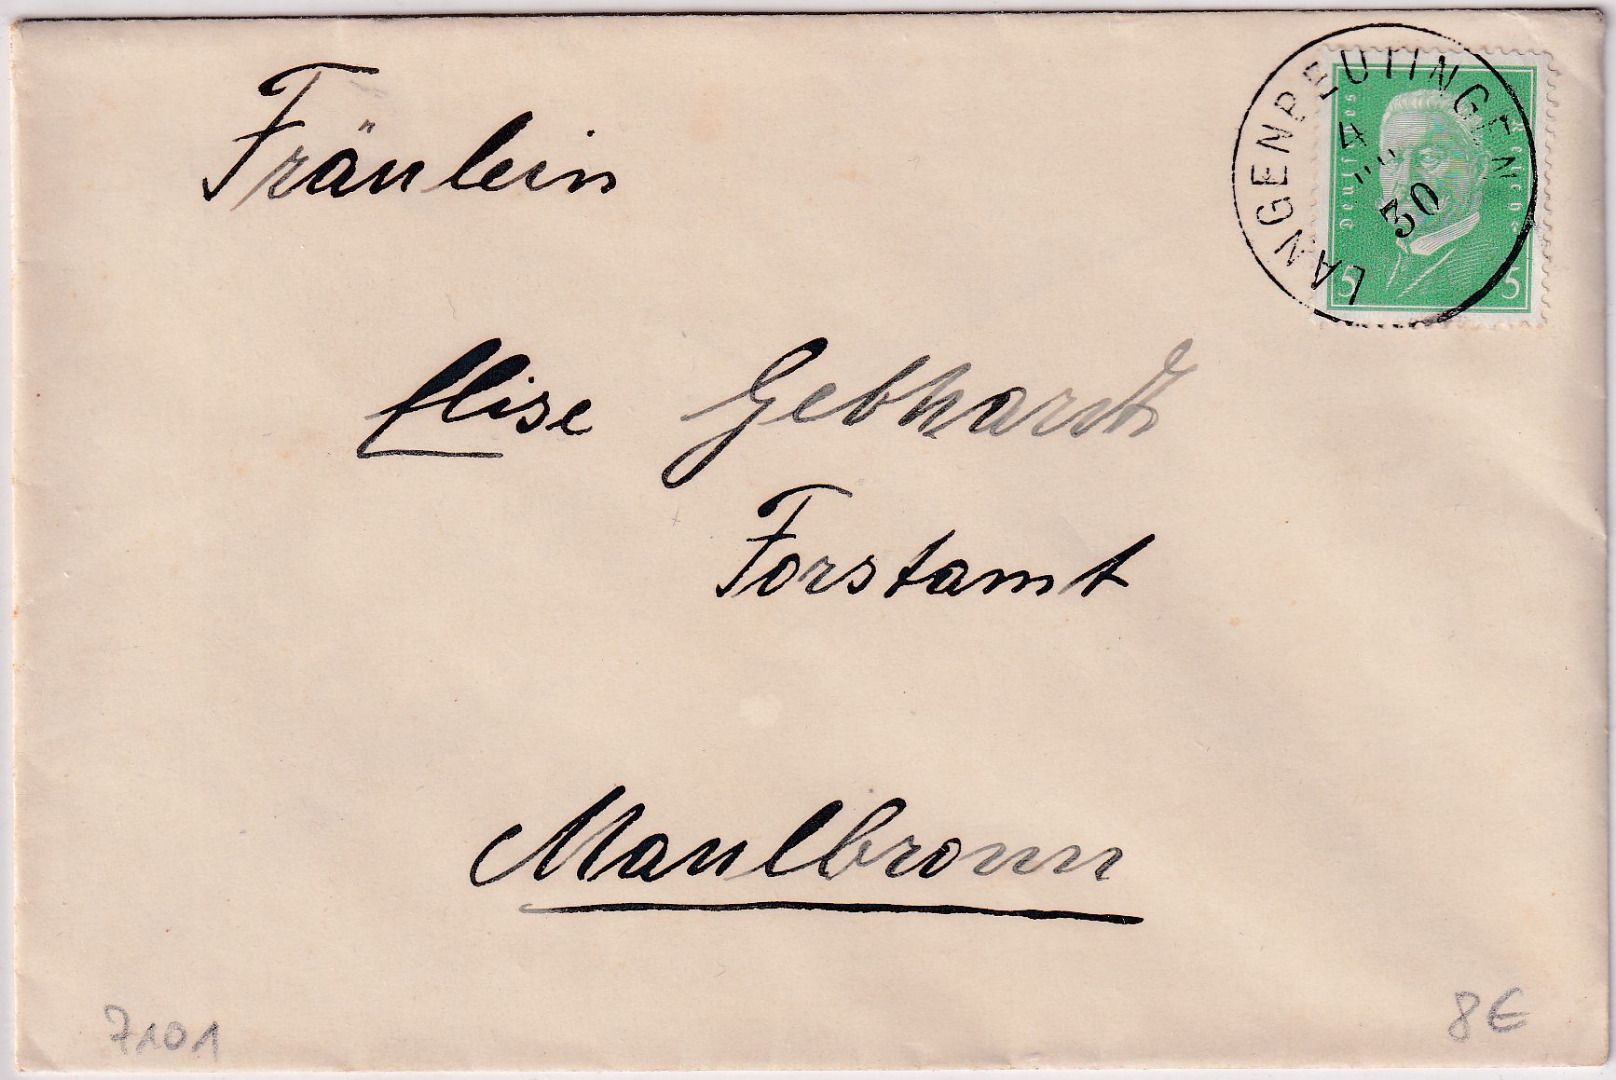 Fräulein
LANGENBEUTINGEN
4
30
Reichspräsident
5 5
Elise Gebhardt
Forstamt
Maulbronn
7101
8€